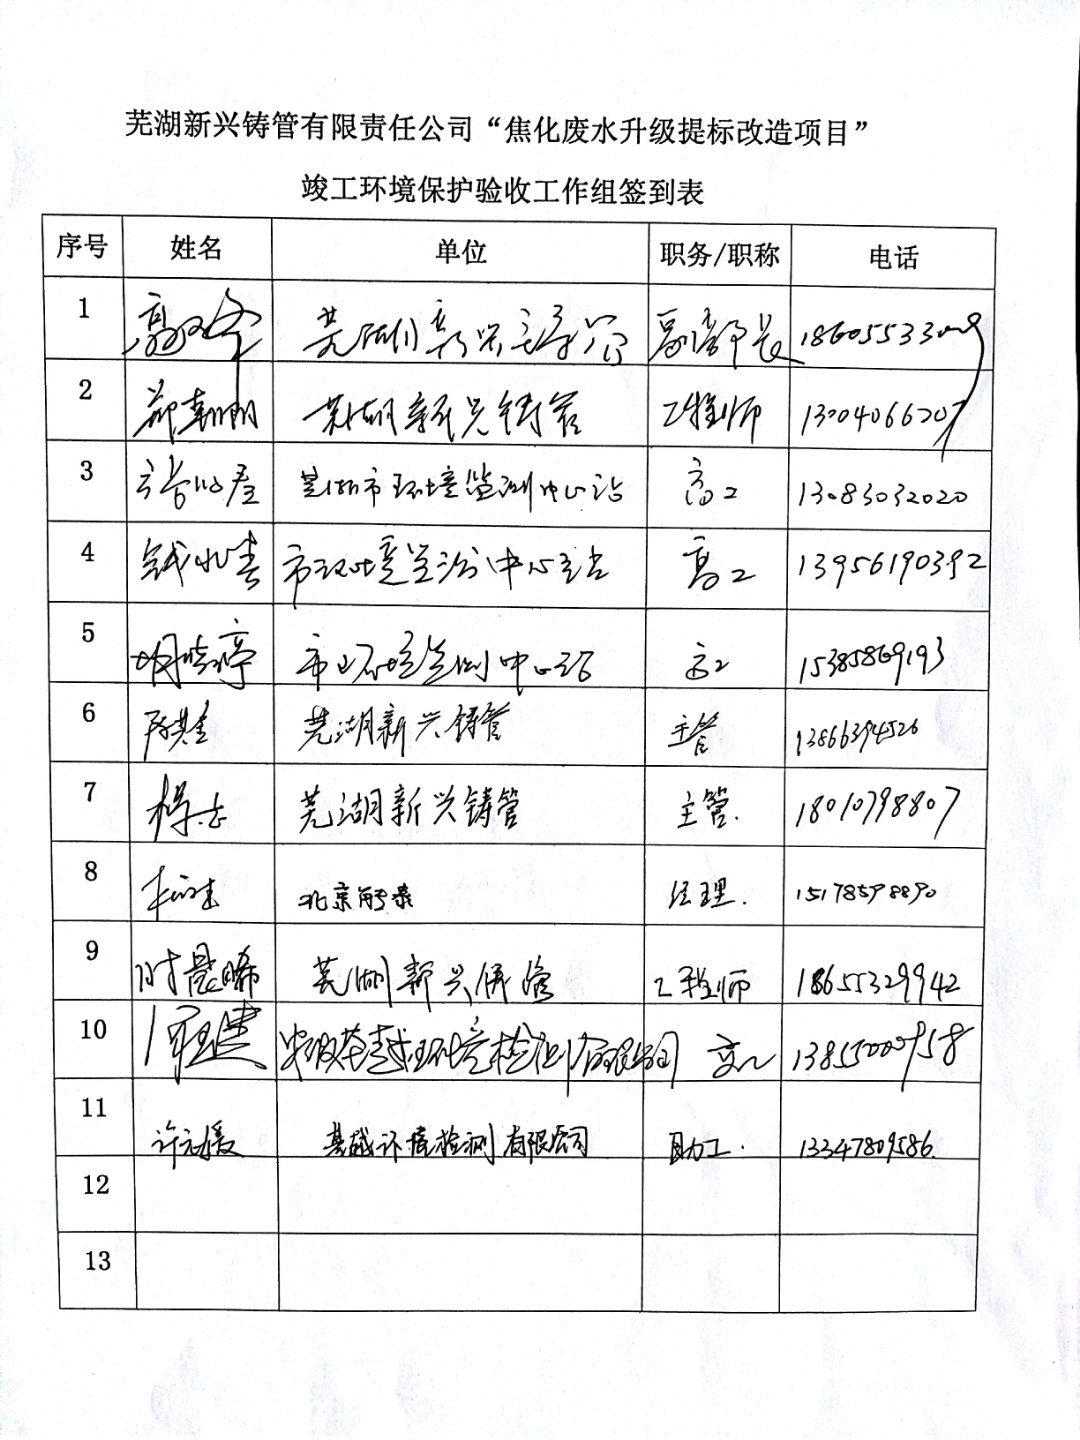 芜湖新兴铸管有限责任公司“焦化废水升级提标改造项目”
竣工环境保护验收工作组签到表
序号 姓名 单位 职务/职称 电话
1 芜湖新兴 副部长
2 郑朝明 芜湖新兴铸管 工程师 13004066207
3 芜湖市环境监测中心站 高工 13083032020
4 市环境监测中心站 高工 13956190392
5 胡晓婷 市环境监测中心站 高工 15385869193
6 芜湖新兴铸管 主管 13866394526
7 芜湖新兴铸管 主管. 18010798807
8 北京 经理. 15178598890
9 时晨曦 芜湖新兴铸管 工程师 18655329942
10 环境检测有限公司 高工 13855000958
11 环境检测有限公司 助工. 13347809586.
12
13